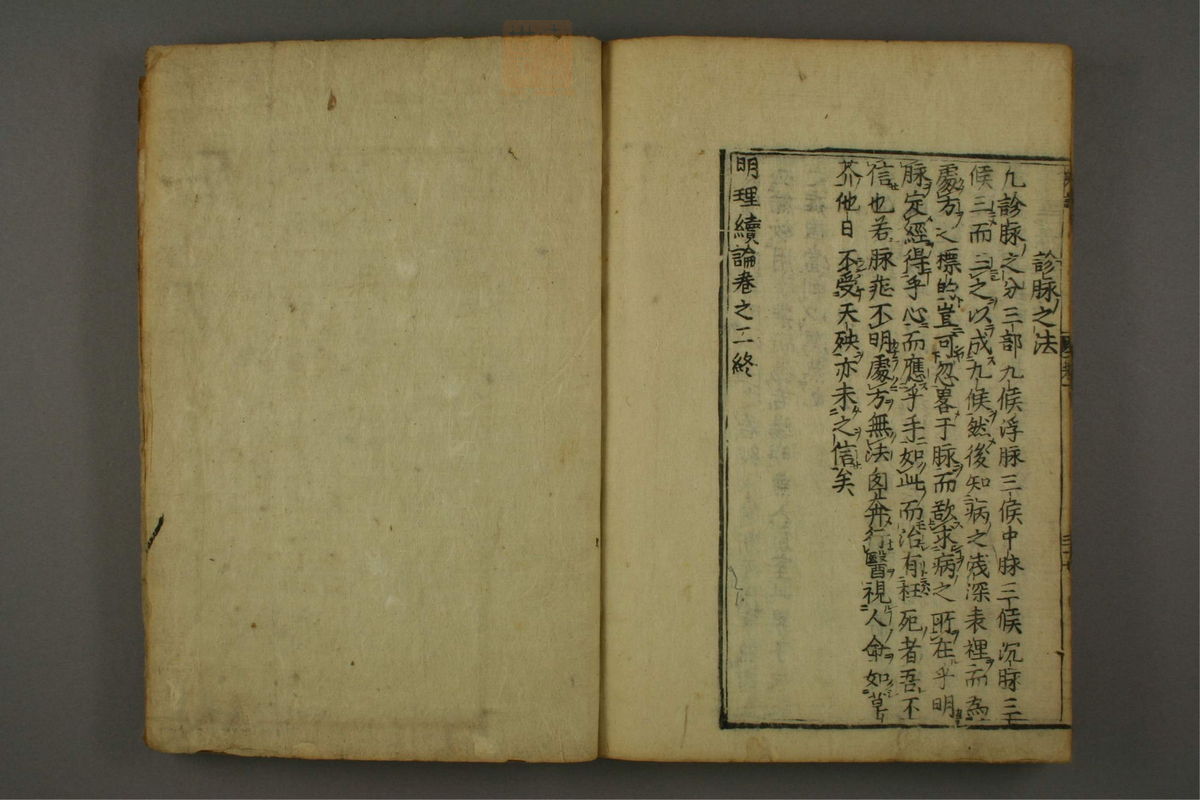 診脉之法
凡診脉之分三部九候浮脉三候中脉三候沉脉三
候三而三之以成九候然後知病之浅深表裡而為
處方之標的豈可忽畧于脉而欲求病之所在乎明
脉定經得乎心而應乎手如此而治有枉死者吾不
信也若脉非不明處方無法匆行醫視人命如草
芥他日不受天殃亦未之信矣
明理續論卷之二終